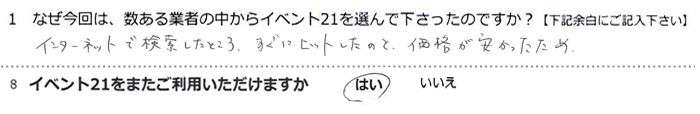 1 なぜ今回は、数ある業者の中からイベント21を選んで下さったのですか？【下記余白にご記入下さい】
インターネットで検索したところ、すぐにヒットしたのと、価格が安かったため。
8 イベント21をまたご利用いただけますか はい いいえ